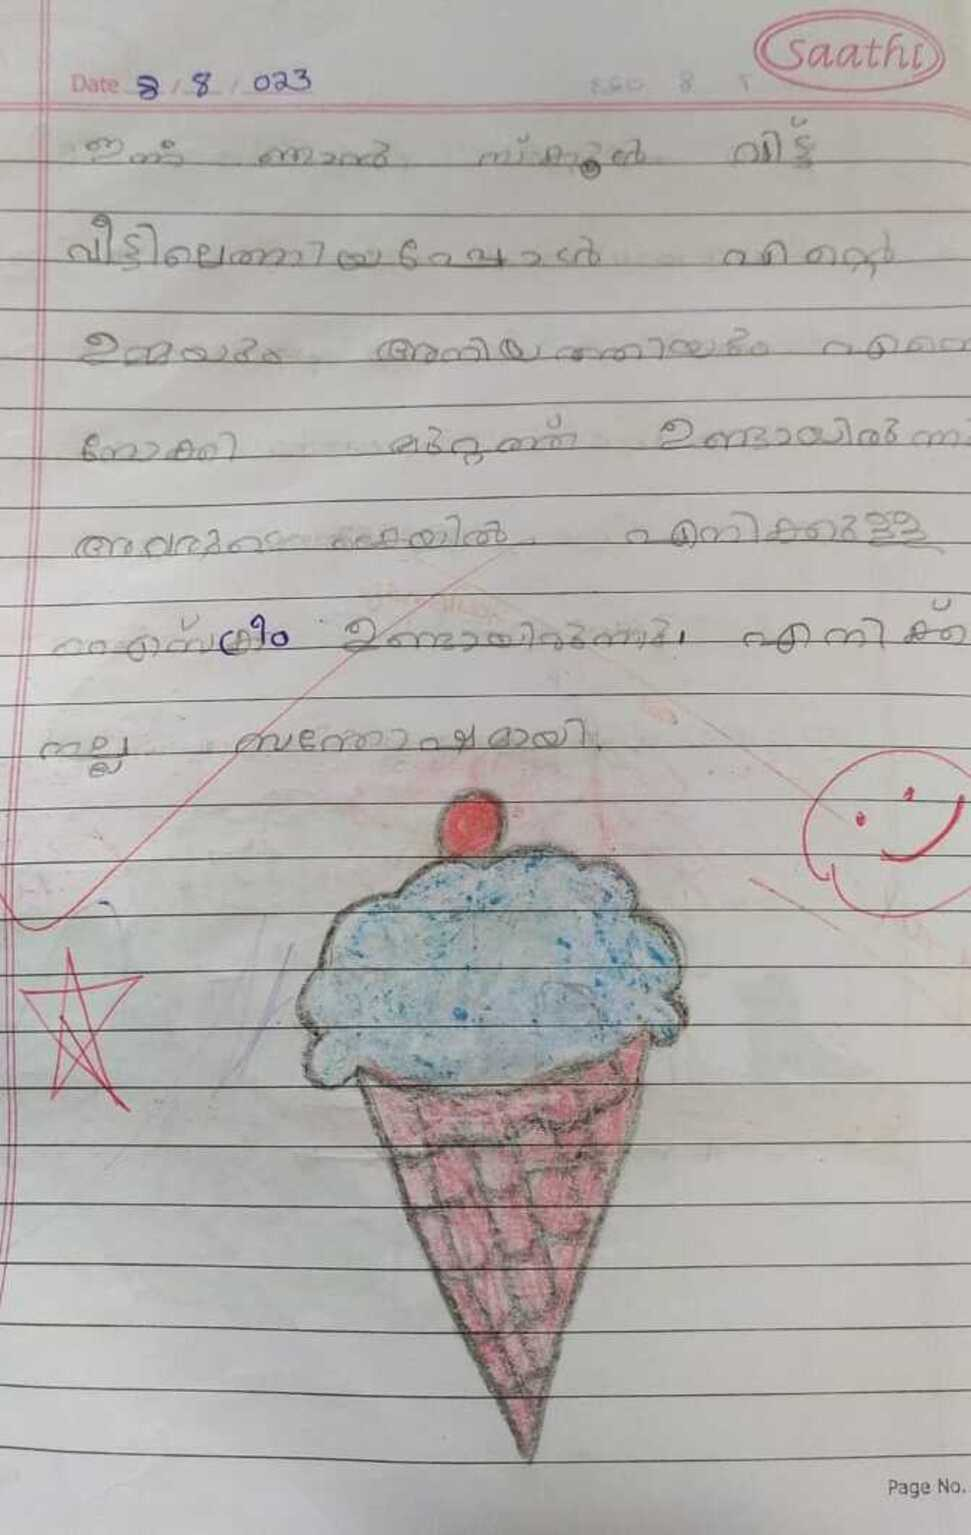 saathi
Date 8/8/023
ഇന്ന് ഞാൻ സ്കൂൾ വിട്ട്
വീട്ടിലെത്തിയപ്പോൾ എന്റെ
ഉമ്മയും അനിയത്തിയും എന്നെ
നോക്കി ഉണ്ടായിരുന്നു
അവരുടെ കയ്യിൽ എനിക്കുള്ള
ഐസ്ക്രീം ഉണ്ടായിരുന്നു. എനിക്ക്
നല്ല സന്തോഷമായി.
Page No.